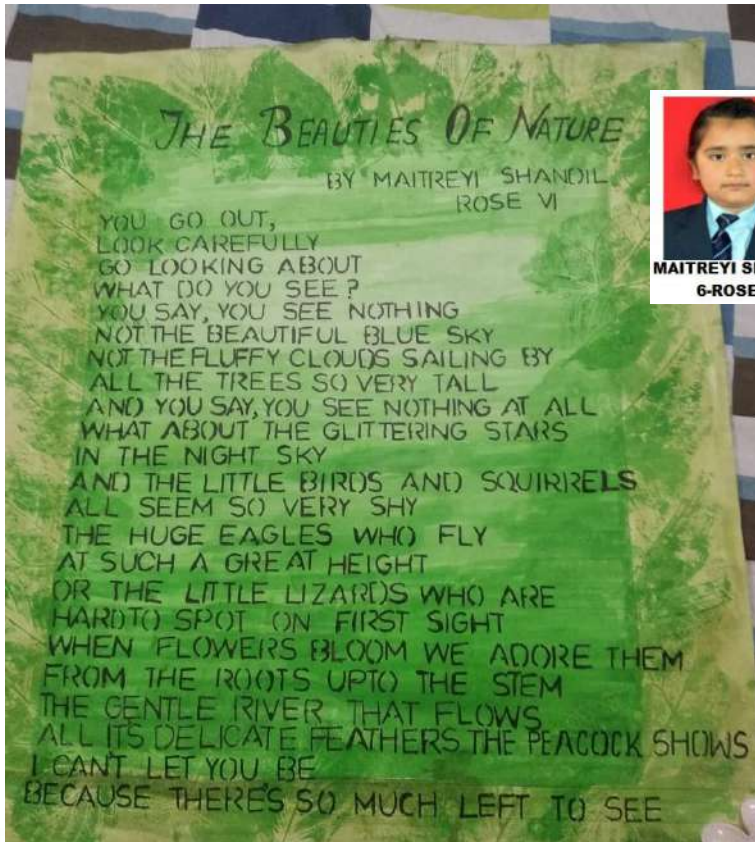 THE BEAUTIES OF NATURE
BY MAITREYI SHANDIL
ROSE VI
YOU GO OUT,
LOOK CAREFULLY
GO LOOKING ABOUT
WHAT DO YOU SEE?
YOU SAY, YOU SEE NOTHING
NOT THE BEAUTIFUL BLUE SKY
NOT THE FLUFFY CLOUDS SAILING BY
ALL THE TREES SO VERY TALL
AND YOU SAY, YOU SEE NOTHING AT ALL
WHAT ABOUT THE GLITTERING STARS
IN THE NIGHT SKY
AND THE LITTLE BIRDS AND SQUIRRELS
ALL SEEM SO VERY SHY
THE HUGE EAGLES WHO FLY
AT SUCH A GREAT HEIGHT
OR THE LITTLE LIZARDS WHO ARE
HARDTO SPOT ON FIRST SIGHT
WHEN FLOWERS BLOOM WE ADORE THEM
FROM THE ROOTS UPTO THE STEM
THE GENTLE RIVER THAT FLOWS
ALL ITS DELICATE FEATHERS THE PEACOCK SHOWS
I CAN'T LET YOU BE
BECAUSE THERE'S SO MUCH LEFT TO SEE
MAITREYI
6-ROSE